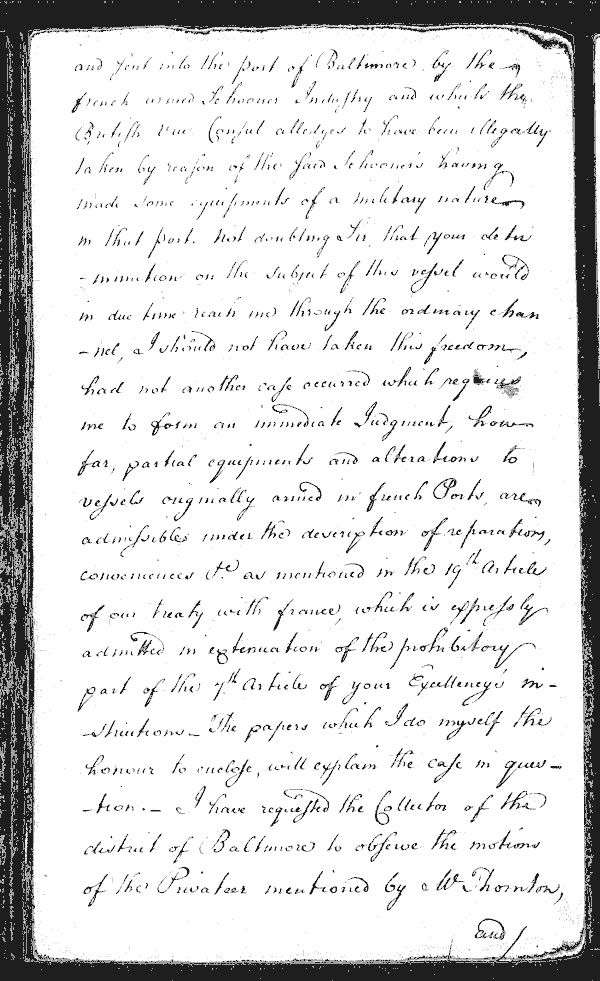 and sent into the port of Baltimore by the
french armed Schooner Industry and which the
British Vice Consul alledges to have been illegally
taken by reason of the said Schooner's having
made some equipments of a military nature
in that port. Not doubting Sir, that your deter
-mination on the subject of this vessel would
in due time reach me through the ordinary chan
-nel, I should not have taken this freedom,
had not another case occurred which requires
me to form an immediate Judgment, how
far, partial equipments and alterations to
vessels originally armed in french Ports, are
admissible under the description of reparations,
conveniences &c. as mentioned in the 19th Article
of our treaty with france, which is expressly
admitted in extenuation of the prohibitory
part of the 7th Article of your Excellency's in-
-structions_ The papers which I do myself the
honour to enclose, will explain the case in ques-
-tion._ I have requested the Collector of the
district of Baltimore to observe the motions
of the Privateer mentioned by Mr. Thornton,
and/